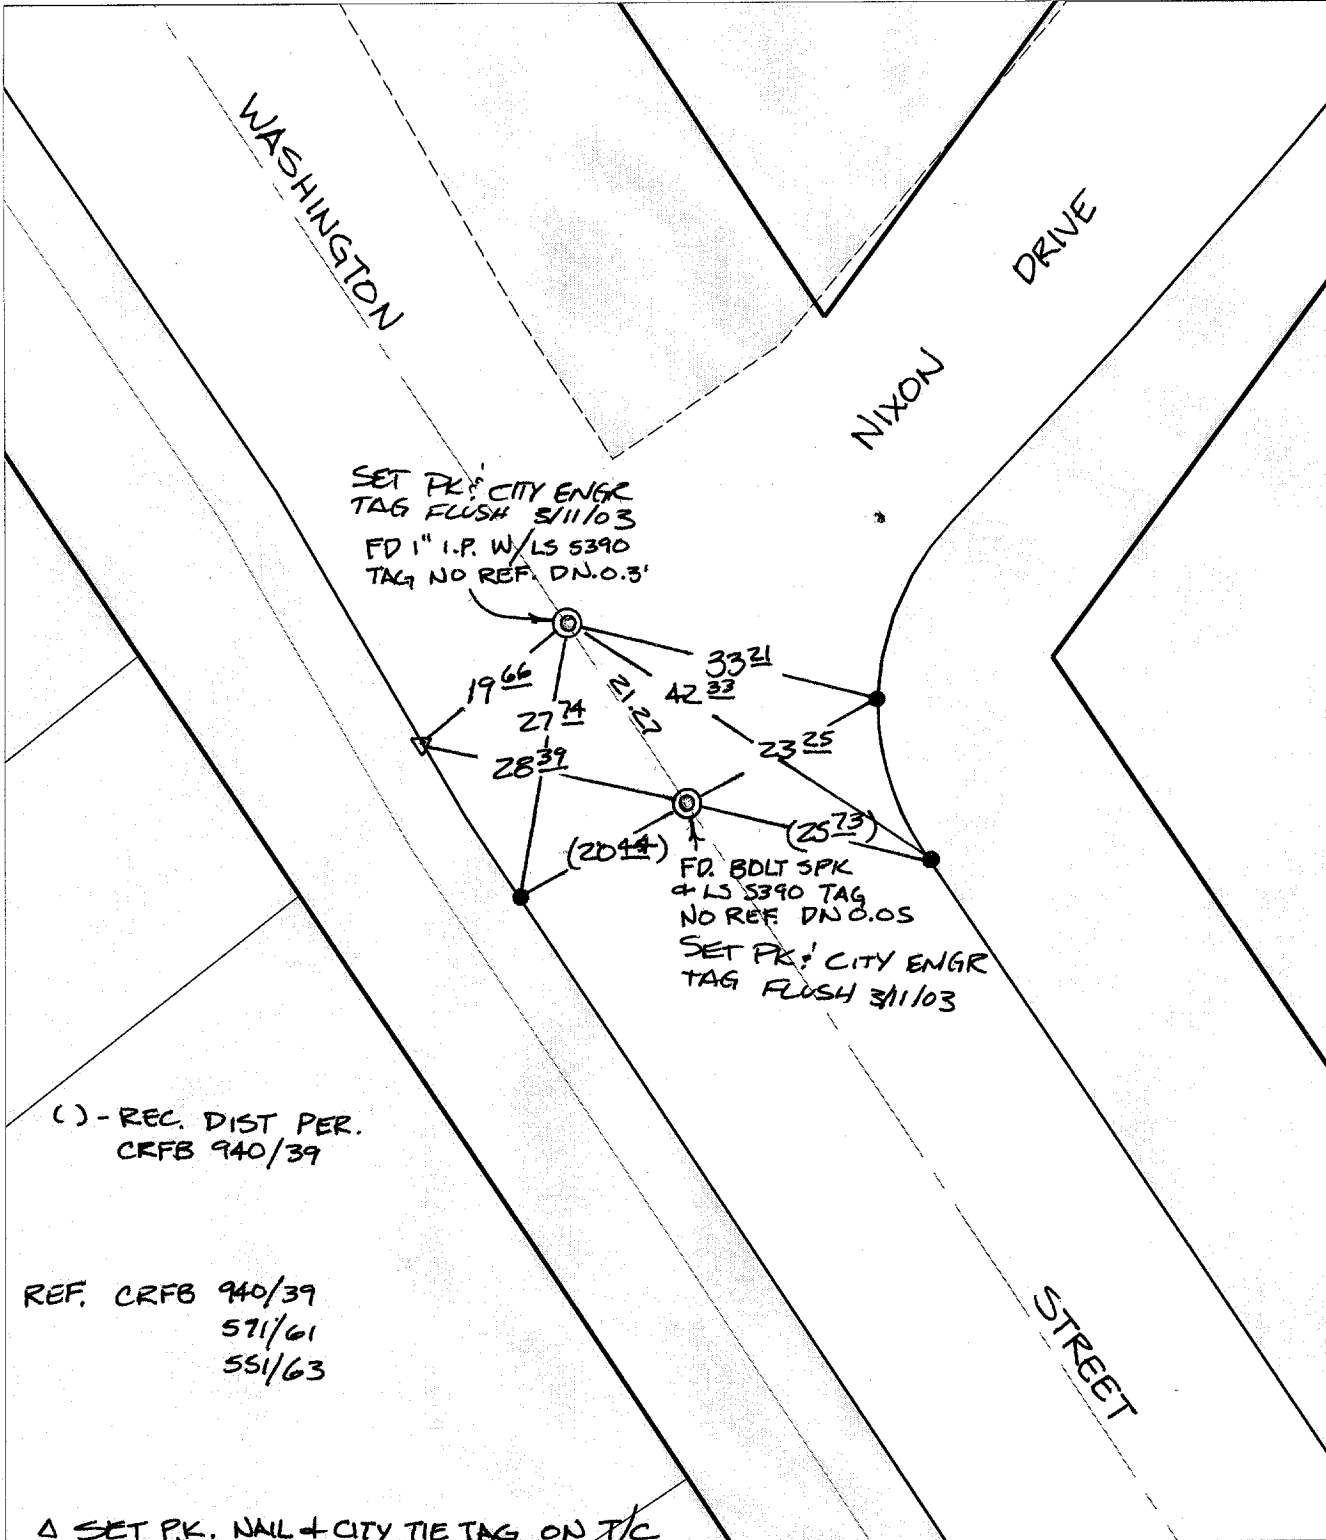 WASHINGTON
DRIVE
NIXON
SET PK & CITY ENGR
TAG FLUSH 3/11/03
FD 1" I.P. W/LS 5390
TAG NO REF. DN. 0.3'
33 21
19 66
42 33
21.27
27 74
23 25
28 39
(25 73)
(20 44)
FD. BOLT SPK
& LS 5390 TAG
NO REF. DN 0.05
SET PK & CITY ENGR
TAG FLUSH 3/11/03
( ) - REC. DIST PER.
CRFB 940/39
REF. CRFB 940/39
571/61
551/63
STREET
Δ SET P.K. NAIL & CITY TIE TAG ON T/C